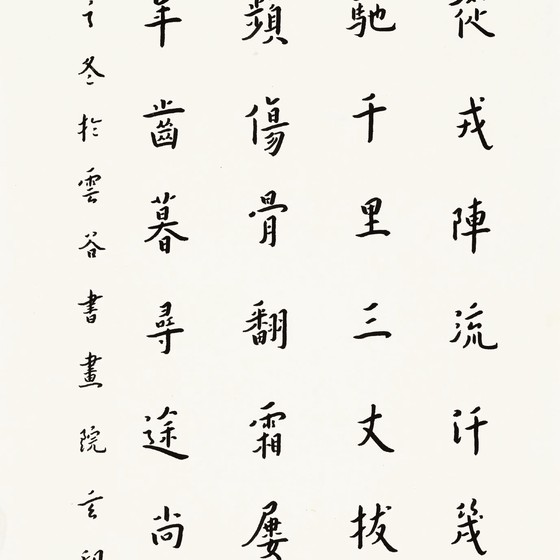 從戎陣流汗幾
馳千里三丈拔
頻傷骨翻霜屢
年齒暮尋途尚
冬於雲谷書畫院玄